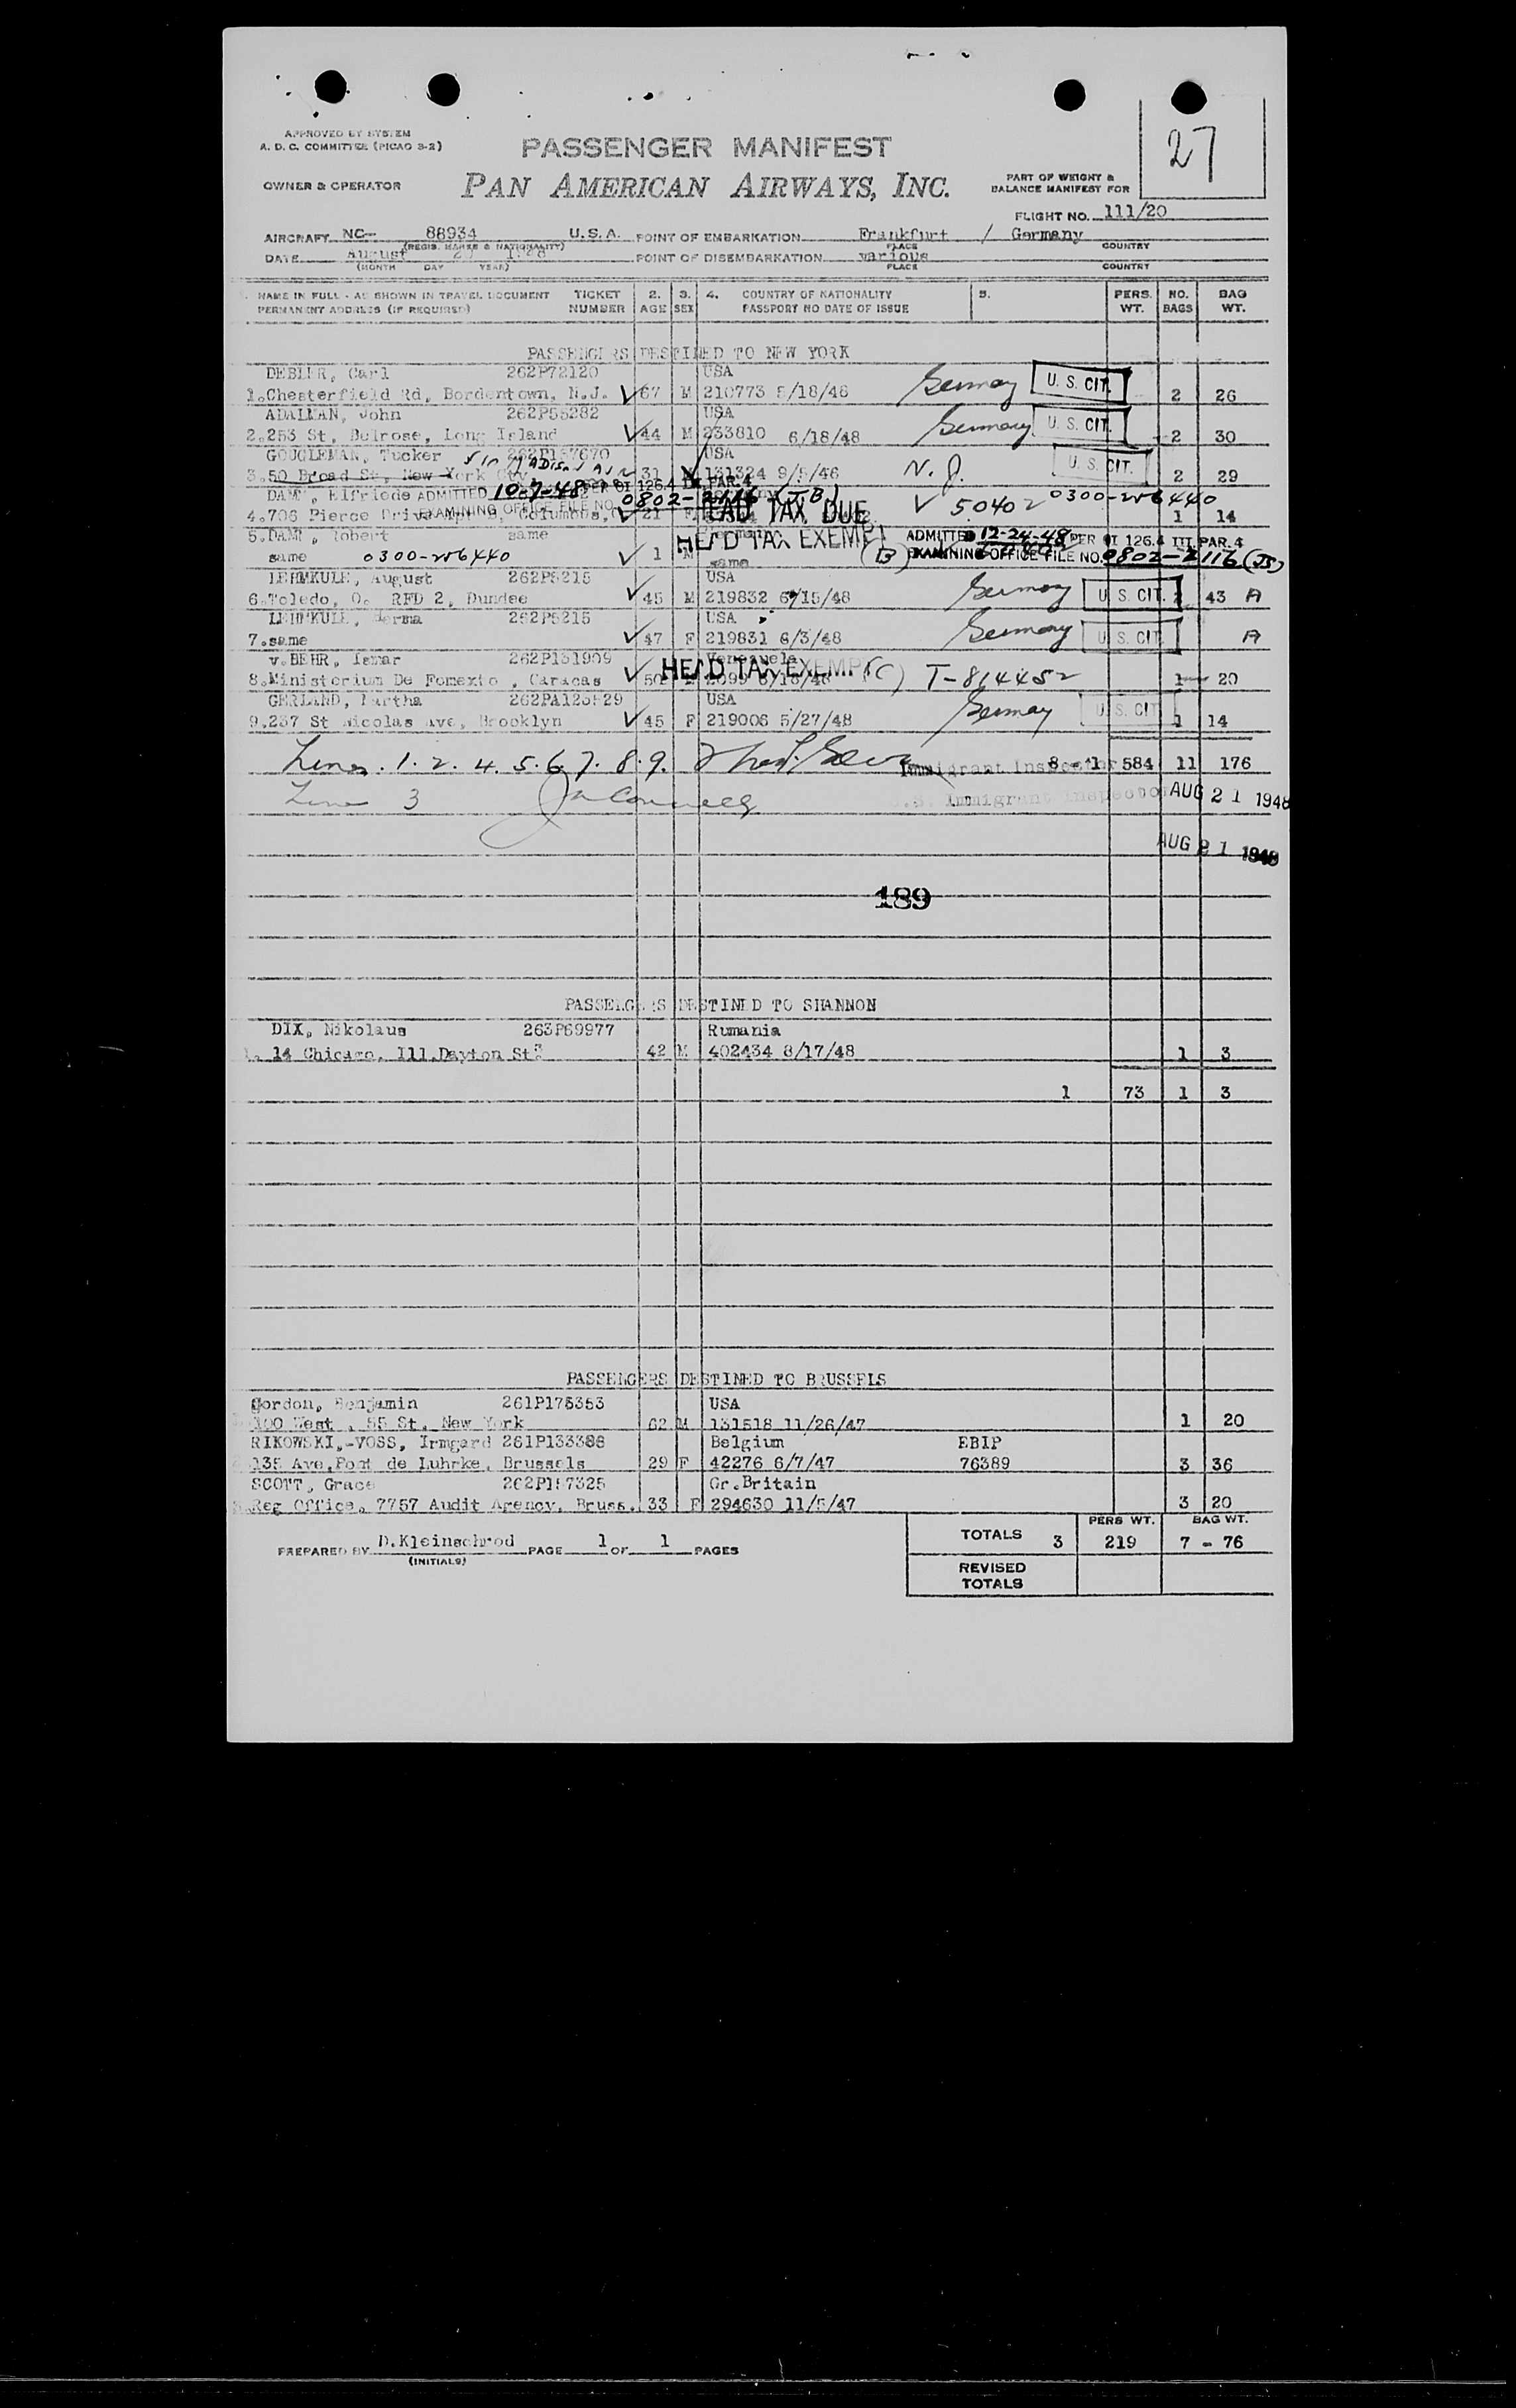 27
APPROVED BY SYSTEM
A. D. C. COMMITTEE (PICAO 3-2)
PASSENGER MANIFEST
OWNER & OPERATOR PAN AMERICAN AIRWAYS, INC.
PART OF WEIGHT &
BALANCE MANIFEST FOR
FLIGHT NO. 111/20
AIRCRAFT NC- 88934 U.S.A. POINT OF EMBARKATION Frankfurt / Germany
(REGIS. MARKS & NATIONALITY) PLACE COUNTRY
DATE August 20 1948 POINT OF DISEMBARKATION various
(MONTH DAY YEAR) PLACE COUNTRY
NAME IN FULL - AS SHOWN IN TRAVEL DOCUMENT TICKET 2. 3. 4. COUNTRY OF NATIONALITY 5. PERS. NO. BAG
PERMANENT ADDRESS (IF REQUIRED) NUMBER AGE SEX PASSPORT NO DATE OF ISSUE WT. BAGS WT.
PASSENGERS DESTINED TO NEW YORK
DEBLER, Carl 262P72120 USA
1. Chesterfield Rd, Bordentown, N.J. 67 M 210773 5/18/48 Germany U. S. CIT. 2 26
ADALMAN, John 262P55282 USA
2. 253 St, Belrose, Long Island 44 M 233810 6/18/48 Germany U. S. CIT. 2 30
GOUGLEMAN, Tucker 262P157670 USA
3. 50 Broad St, New York City 31 131324 9/5/46 N. J. U. S. CIT. 2 29
DAMM, Elfriede ADMITTED 10-7-48 PER OI 126.4 III PAR. 4
EXAMINING OFFICE FILE NO. 0802-2116 (JB)
4. 706 Pierce Drive Columbus, 21 F HEAD TAX DUE 50402 0300-256440 1 14
5. DAMM, Robert same HEAD TAX EXEMPT ADMITTED 12-24-48 PER OI 126.4 III PAR. 4
same 0300-256440 1 M same (B) EXAMINING OFFICE FILE NO. 0802-2116 (JB)
LEHMKULE, August 262P5215 USA
6. Toledo, O. RFD 2, Dundee 45 M 219832 6/15/48 Germany U. S. CIT. 2 43 A
LEHMKULE, Herma 262P5215 USA
7. same 47 F 219831 6/3/48 Germany U. S. CIT. A
v. BEHR, Ismar 262P131909 Venezuela
8. Ministerium De Fomexto, Caracas 50 HEAD TAX EXEMPT (C) T-814452 1 20
GERLAND, Martha 262PA125529 USA
9. 237 St Nicolas Ave, Brooklyn 45 F 219006 5/27/48 Germany U. S. CIT. 1 14
Lines. 1. 2. 4. 5. 6. 7. 8. 9. Immigrant Inspector 8 - 1 584 11 176
Line 3 U.S. Immigrant Inspector AUG 21 1948
AUG 21 1948
189
PASSENGERS DESTINED TO SHANNON
DIX, Nikolaus 263P69977 Rumania
1. 14 Chicago, Ill. Dayton St 42 M 402434 8/17/48 1 3
1 73 1 3
PASSENGERS DESTINED TO BRUSSELS
Gordon, Benjamin 261P175353 USA
100 West, 55 St, New York 62 M 131518 11/26/47 1 20
RIKOWSKI,-VOSS, Irmgard 261P133386 Belgium EBIP
135 Ave, Pont de Luhrke, Brussels 29 F 42276 6/7/47 76389 3 36
SCOTT, Grace 262P157325 Gr.Britain
Reg Office, 7757 Audit Agency, Bruss. 33 F 294630 11/5/47 3 20
PERS WT. BAG WT.
PREPARED BY D.Kleinschrod PAGE 1 OF 1 PAGES TOTALS 3 219 7 - 76
(INITIALS)
REVISED
TOTALS